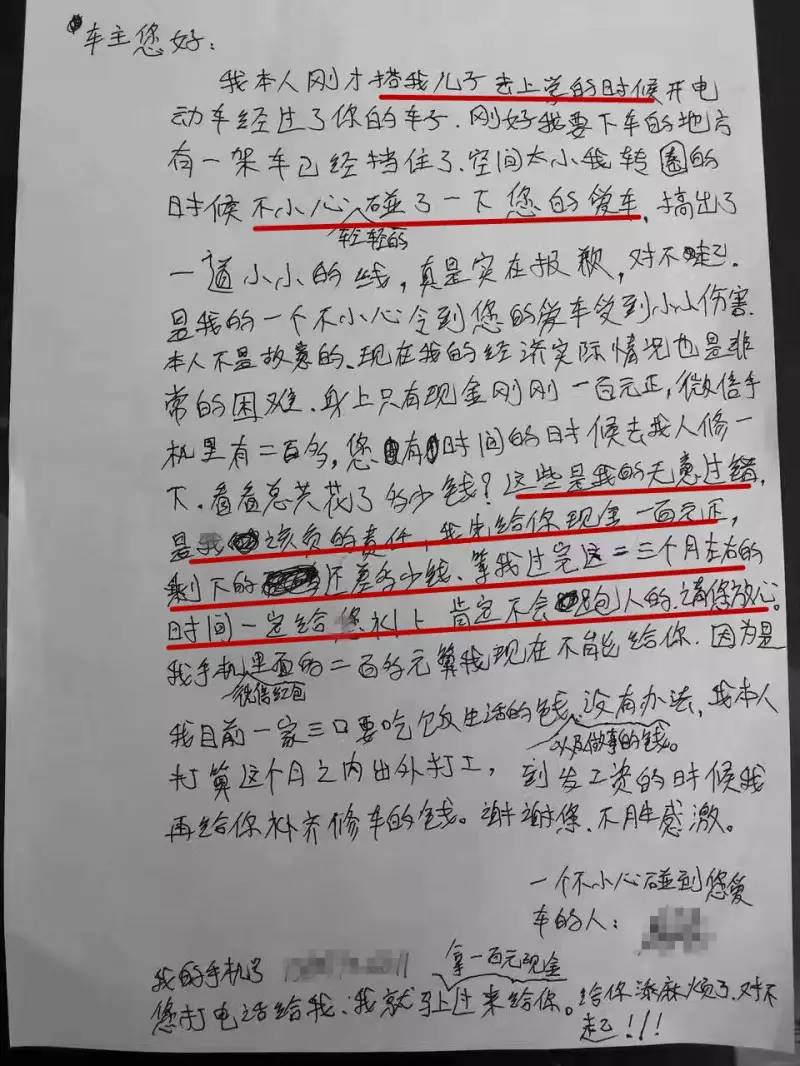 车主您好：
我本人刚才搭我儿子去上学的时候开电
动车经过了你的车子.刚好我要下车的地方
有一架车已经挡住了.空间太小我转圈的
时候不小心轻轻的碰了一下您的爱车,搞出了
一道小小的线,真是实在报歉,对不起.
是我的一个不小心令到您的爱车受到小小伤害.
本人不是故意的、现在我的经济实际情况也是非
常的困难.身上只有现金刚刚一百元正,微信手
机里有二百多,您有时间的时候去找人修一
下.看看总共花了多少钱?这些是我的无意过错,
是我该负的责任,我先给你现金一百元正,
剩下的还差多少钱、等我过完这二三个月左右的
时间一定给您补上肯定不会跑人的.请您放心。
我手机里面的微信红包二百多元算我现在不能给你.因为是
我目前一家三口要吃饭生活的钱以及做事的钱。没有办法,我本人
打算这个月之内出外打工,到发工资的时候我
再给你补齐修车的钱。谢谢您.不胜感激。
一个不小心碰到您爱
车的人：
我的手机号
您打电话给我、我就拿一百元现金马上过来给你。给你添麻烦了.对不
起!!!